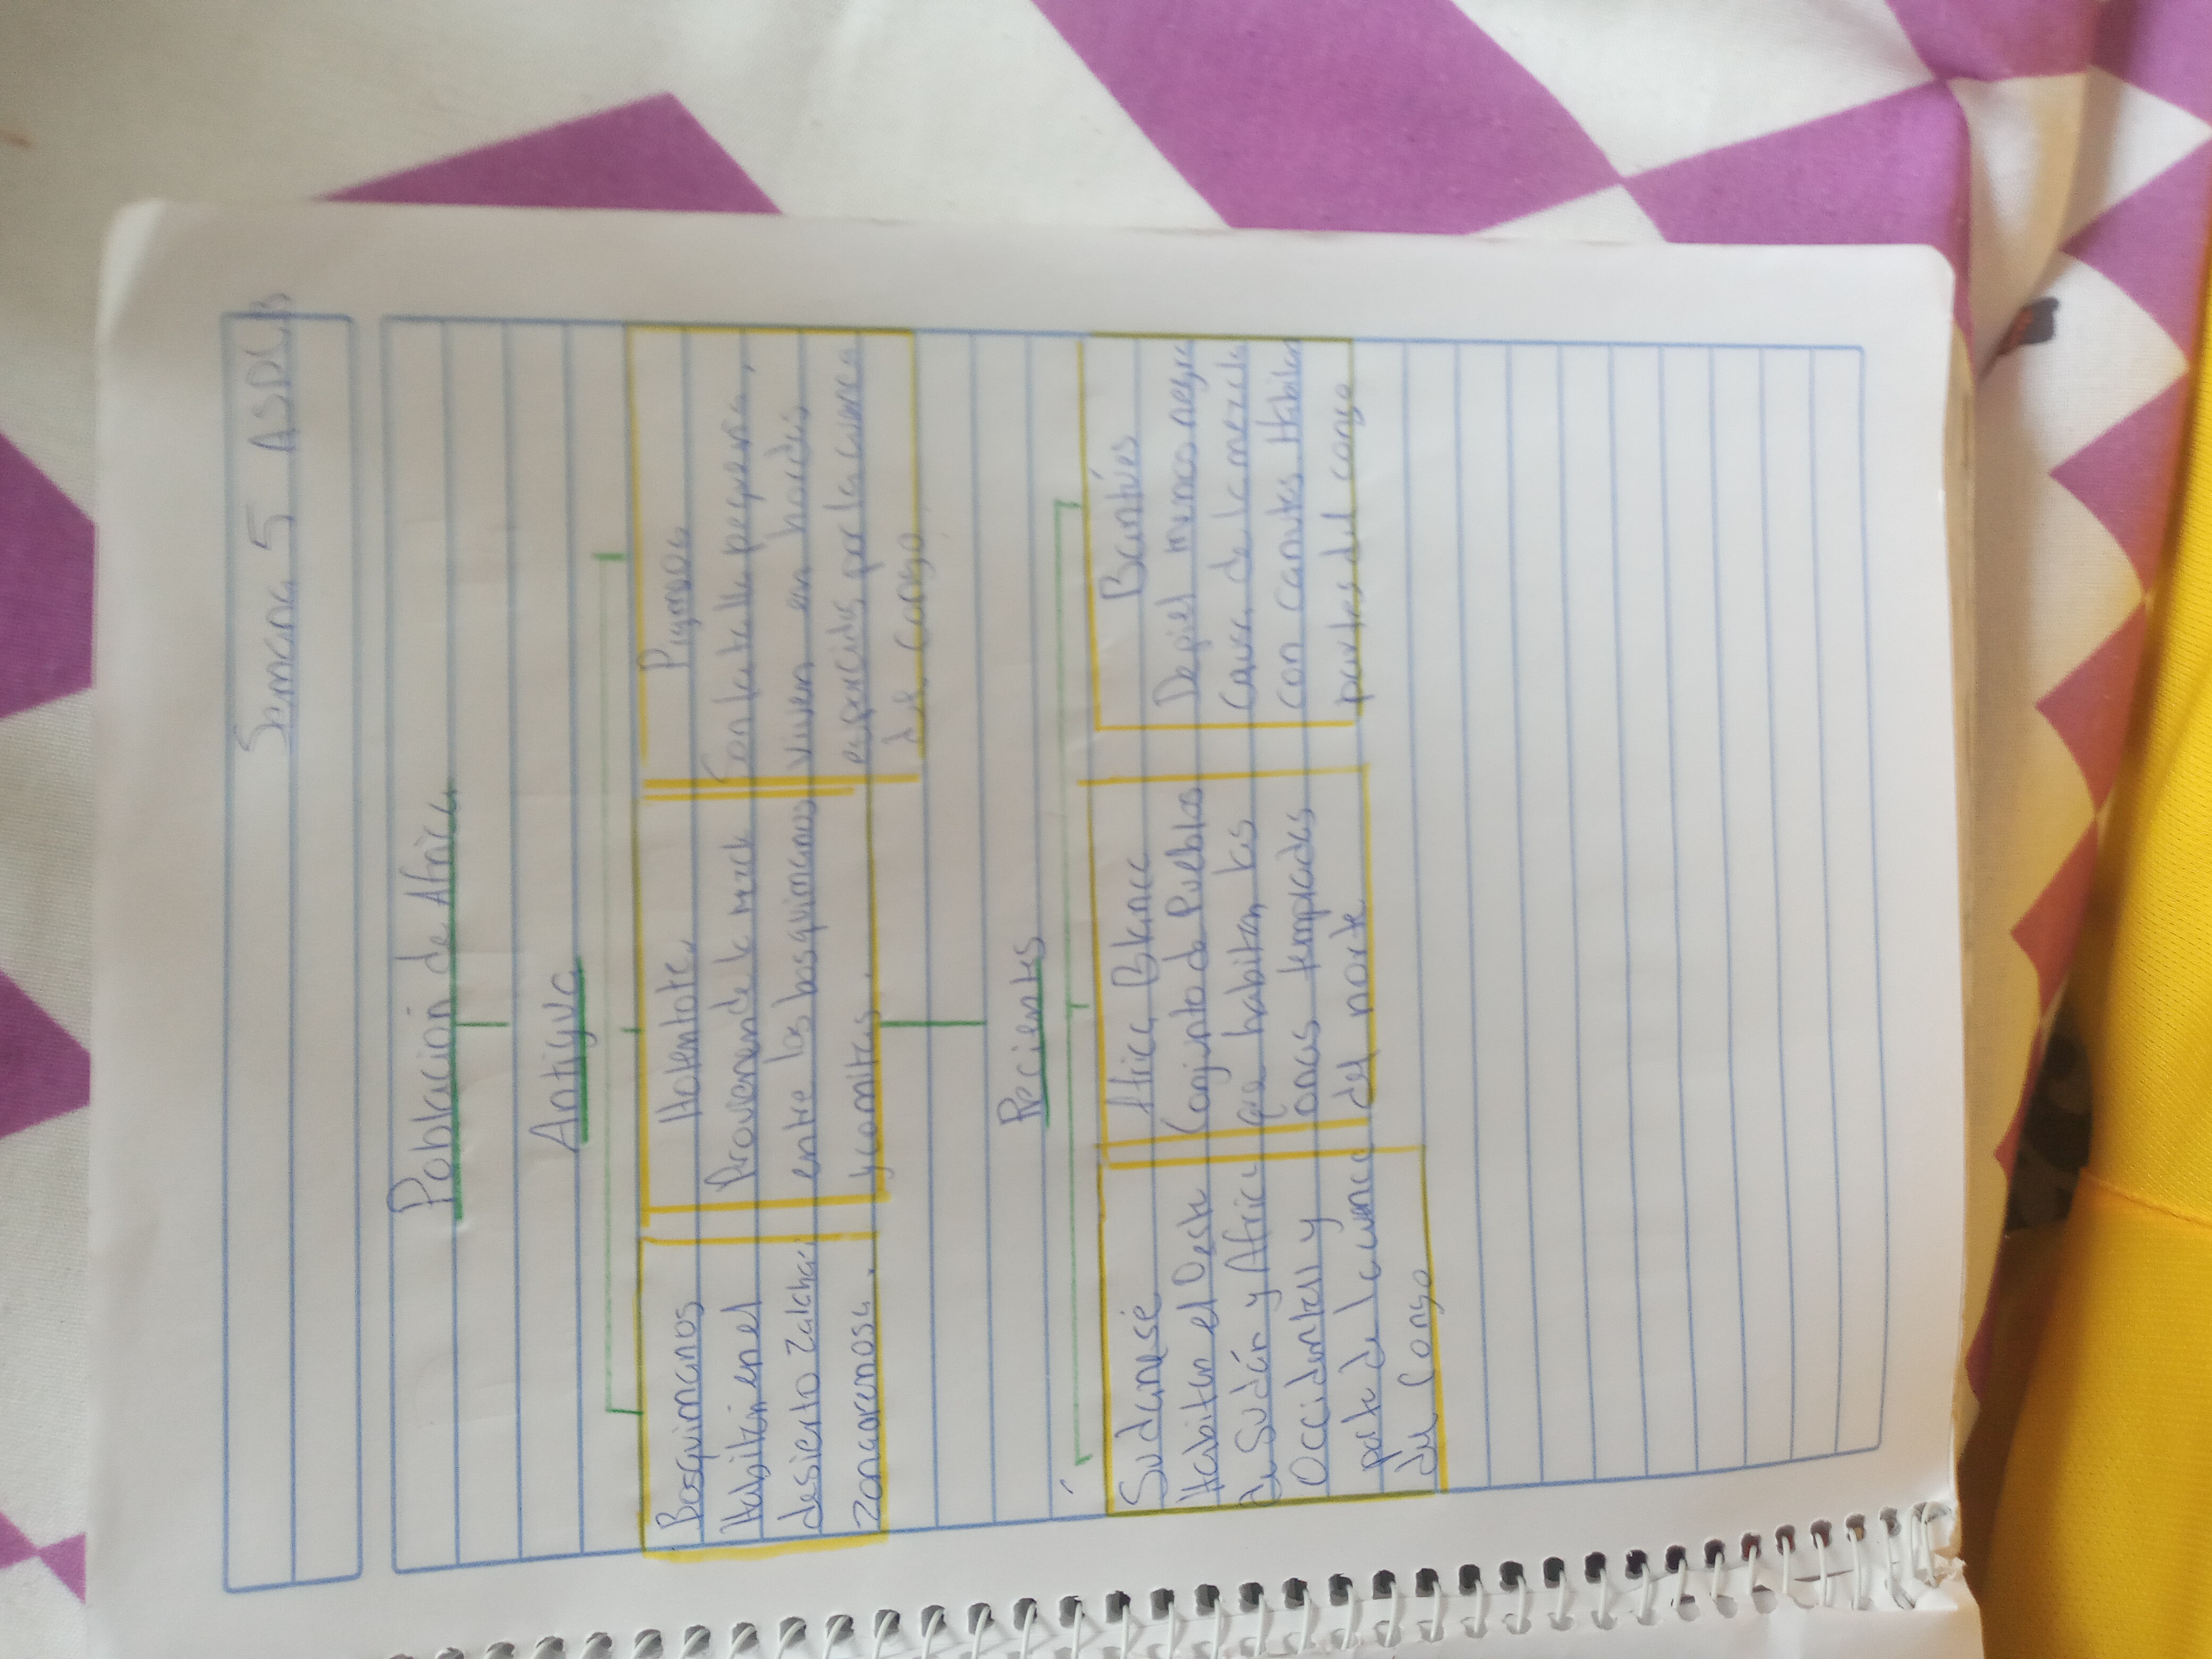 Semana 5 ASDLB
Población de Africa
Antigua
Bosquimanos
Habitan en el
desierto Zalahari
zona arenosa.
Hotentote
Provienen de la mezcl
entre los bosquimanos
y camitas.
Pigmos
Son la talla pequeña,
viven en hordas
esparcidas por la cuenca
de congo.
Recientes
Sudanesé
Habitan el Oeste
de Sudán y Africa
Occidental y
parte de la cuenca
del Congo
Africa Blanca
Conjunto de Pueblos
que habitan las
onas templadas
del norte
Bantúes
De piel menos negra
Causa de la mezcla
con camitas Habitan
partes del congo